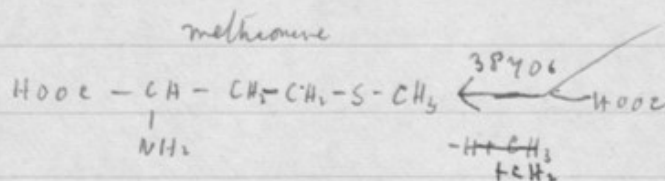 methionine
38406
HOOC — CH — CH2 — CH2 — S — CH3 ← HOOC
|
NH2
-H+CH3
+CH2